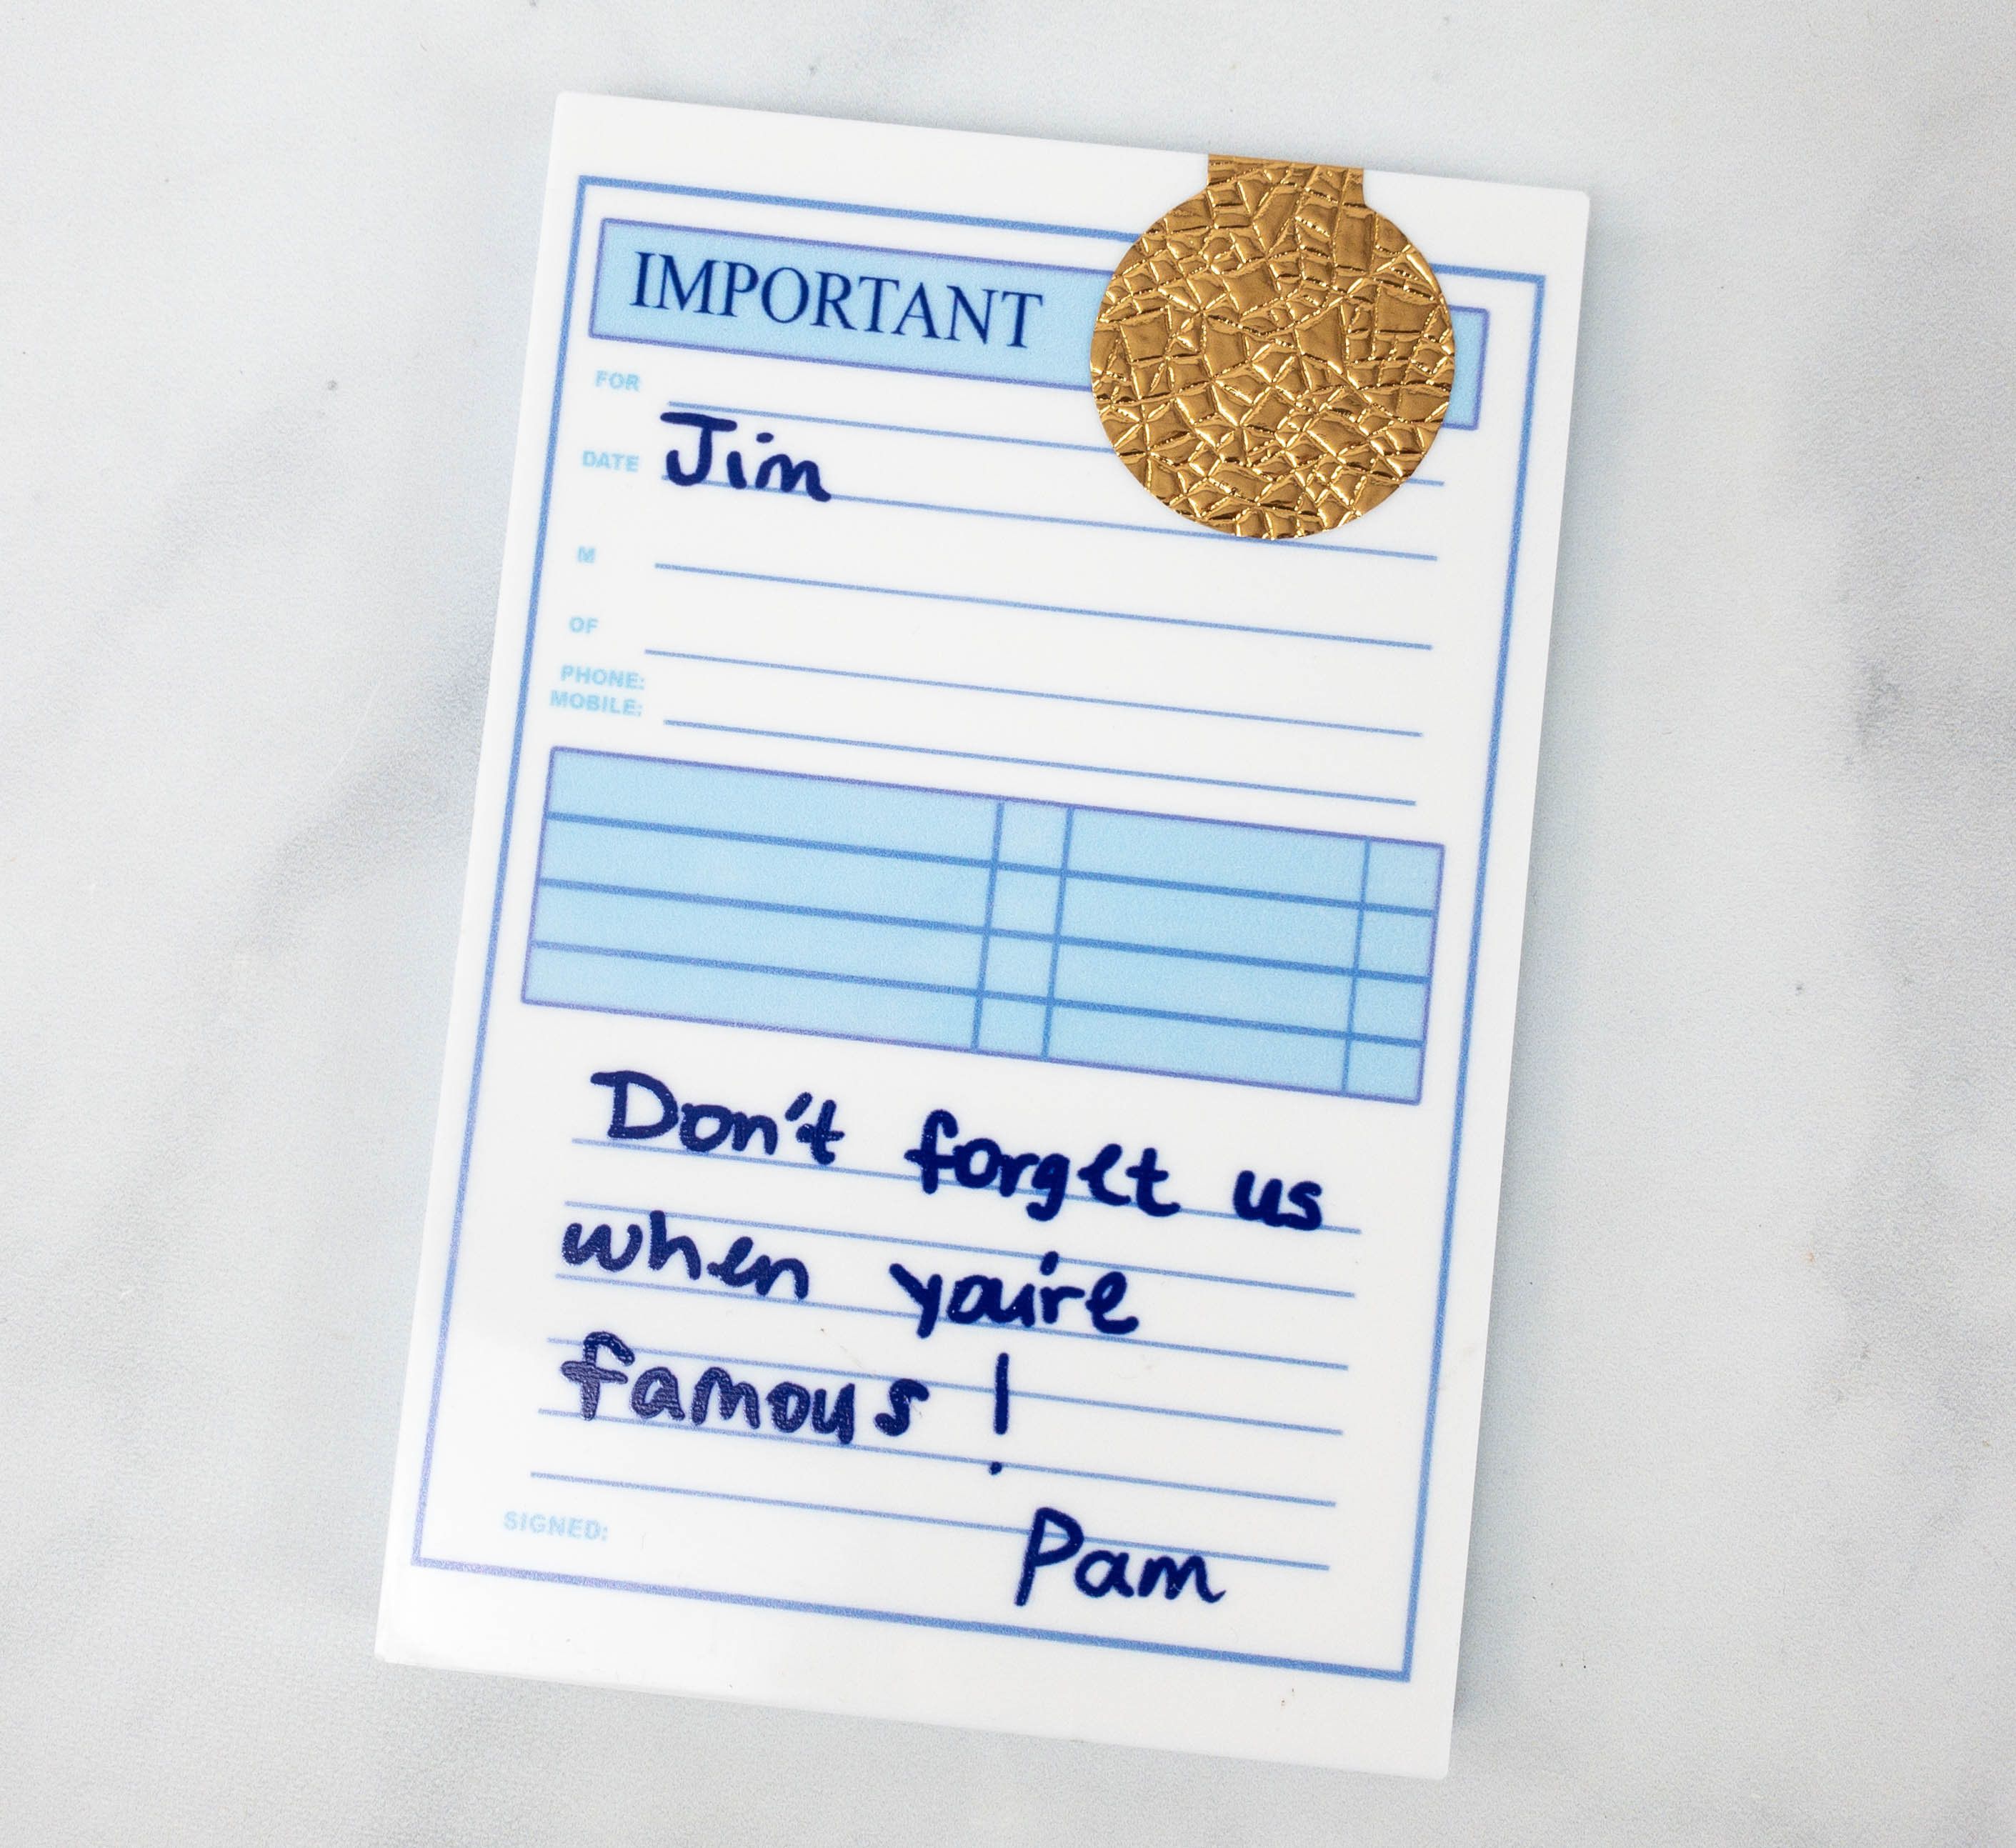 IMPORTANT
FOR
DATE Jim
M
OF
PHONE:
MOBILE:
Don't forget us
when you're
famous!
SIGNED: Pam